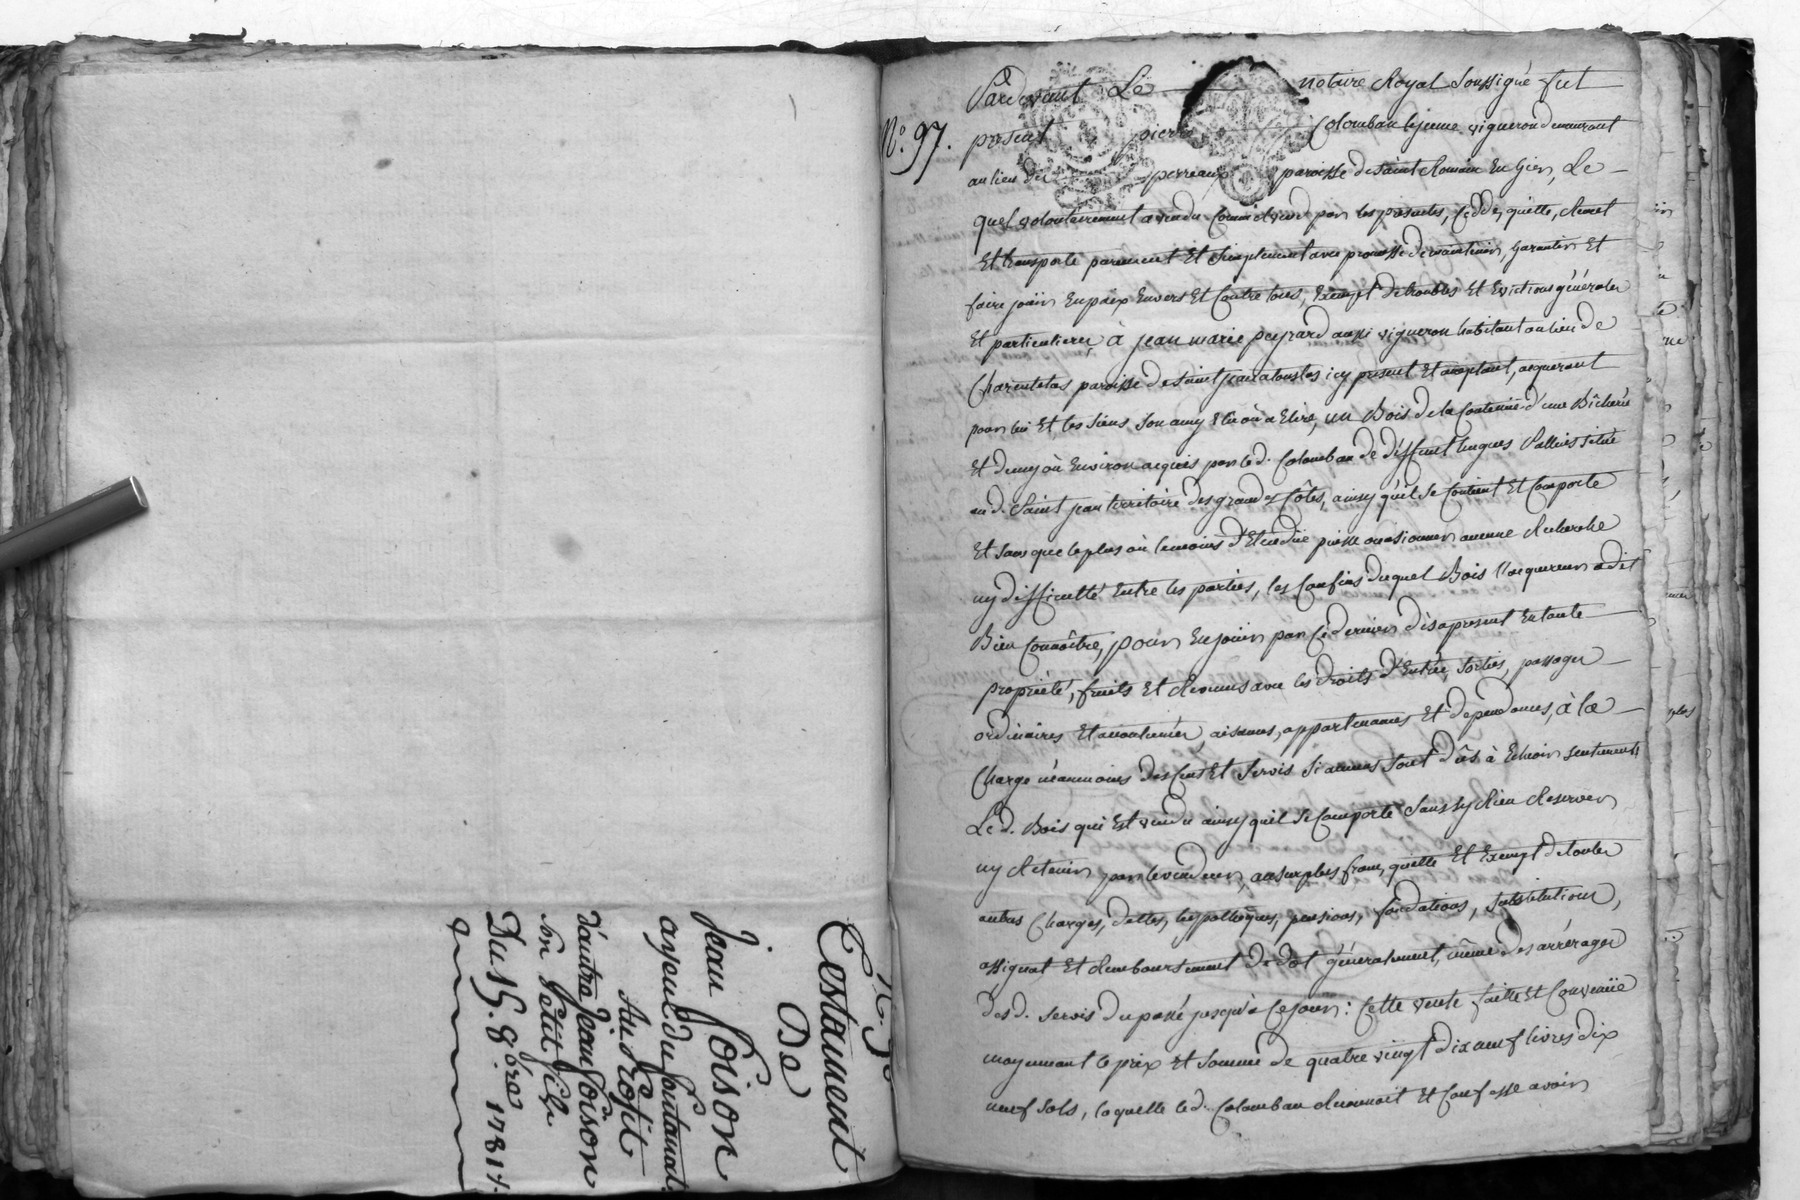 Testament
De
Jean Poison
ayeul du fontanat
Au Profit
d'autre Jean Poison
son petit fils
Du 15. 8bre 1781.
N.° 97.
Pardevant Le notaire Royal soussigné fut
present pierre Colomban le jeune vigneron demeurant
au lieu des perreaux paroisse de saint Romain en Gier, Le
quel volontairement a vendu comme il vend par les presentes, cedde, quitte, Remet
Et transporte purement Et simplement avec promesse de maintenir, garantir Et
faire jouir En paix Envers Et Contre tous, Exempt de troubles Et Evictions générales
Et particulieres à jean marie peyrard aussi vigneron habitant au lieu de
paroisse de saint jean a touslas icy present Et acceptant, acquerant
pour lui Et les siens son amy Elu où a Elire, un Bois de la Contenüe d'une Bicherée
Et demy où Environ acquis par led. Colomban de deffunt hugues situé
aud. saint jean territoire des grandes Côtes, ainsy qu'il se Contient Et Comporte
Et sans que le plus où le moins d'Etendüe puisse occasionner aucune Recherche
ny difficulté Entre les parties, les Confins duquel Bois l'acquereur a dit
Bien Connoitre, pour En jouir par Ce dernier dès a present En toute
propriété, fruits Et Revenus avec les droits d'Entrée, sorties, passages
ordinaires Et accoutumés, aisances, appartenances Et dependances, à la
Charge néanmoins des Cens Et servis si aucuns sont dûs à Echoir seulement
Led. Bois qui Est vendu ainsy qu'il se Comporte sans y Rien Reserver
ny Retenir par le vendeur, au surplus franc, quitte Et Exempt de toutes
autres Charges, dettes, hypotheques, pensions, fondations, substitutions,
assignat Et Remboursement de dot généralement, même des arrérages
desd. servis du passé jusqu'à Ce jour: Cette vente faitte Et Convenüe
moyennant le prix Et somme de quatre vingt dix neuf livres dix
neuf sols, laquelle led. Colomban Reconnoit Et Confesse avoir